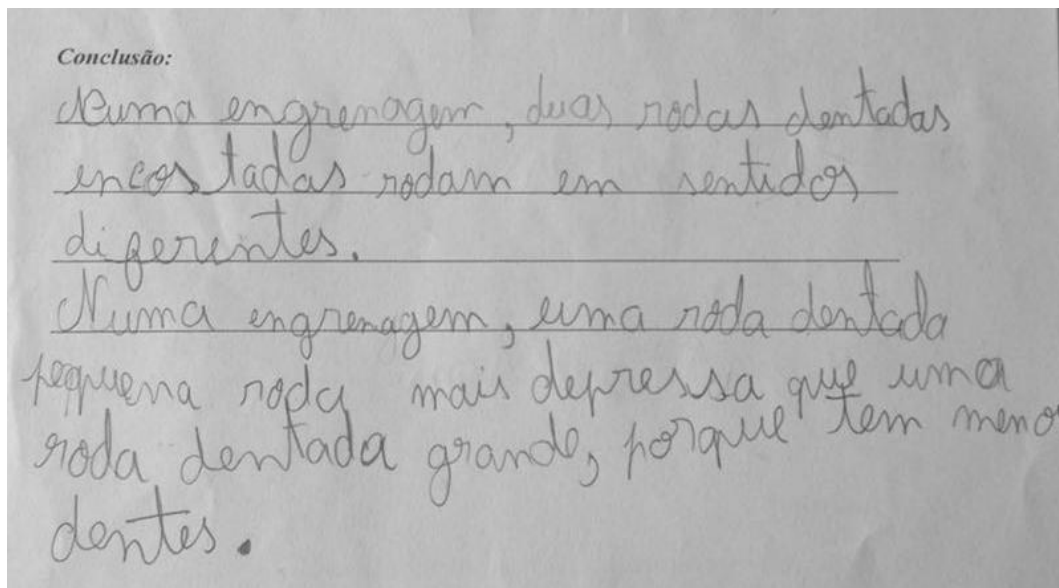 Conclusão:
Numa engrenagem, duas rodas dentadas
encostadas rodam em sentidos
diferentes.
Numa engrenagem, uma roda dentada
pequena roda mais depressa que uma
roda dentada grande, porque tem meno
dentes.